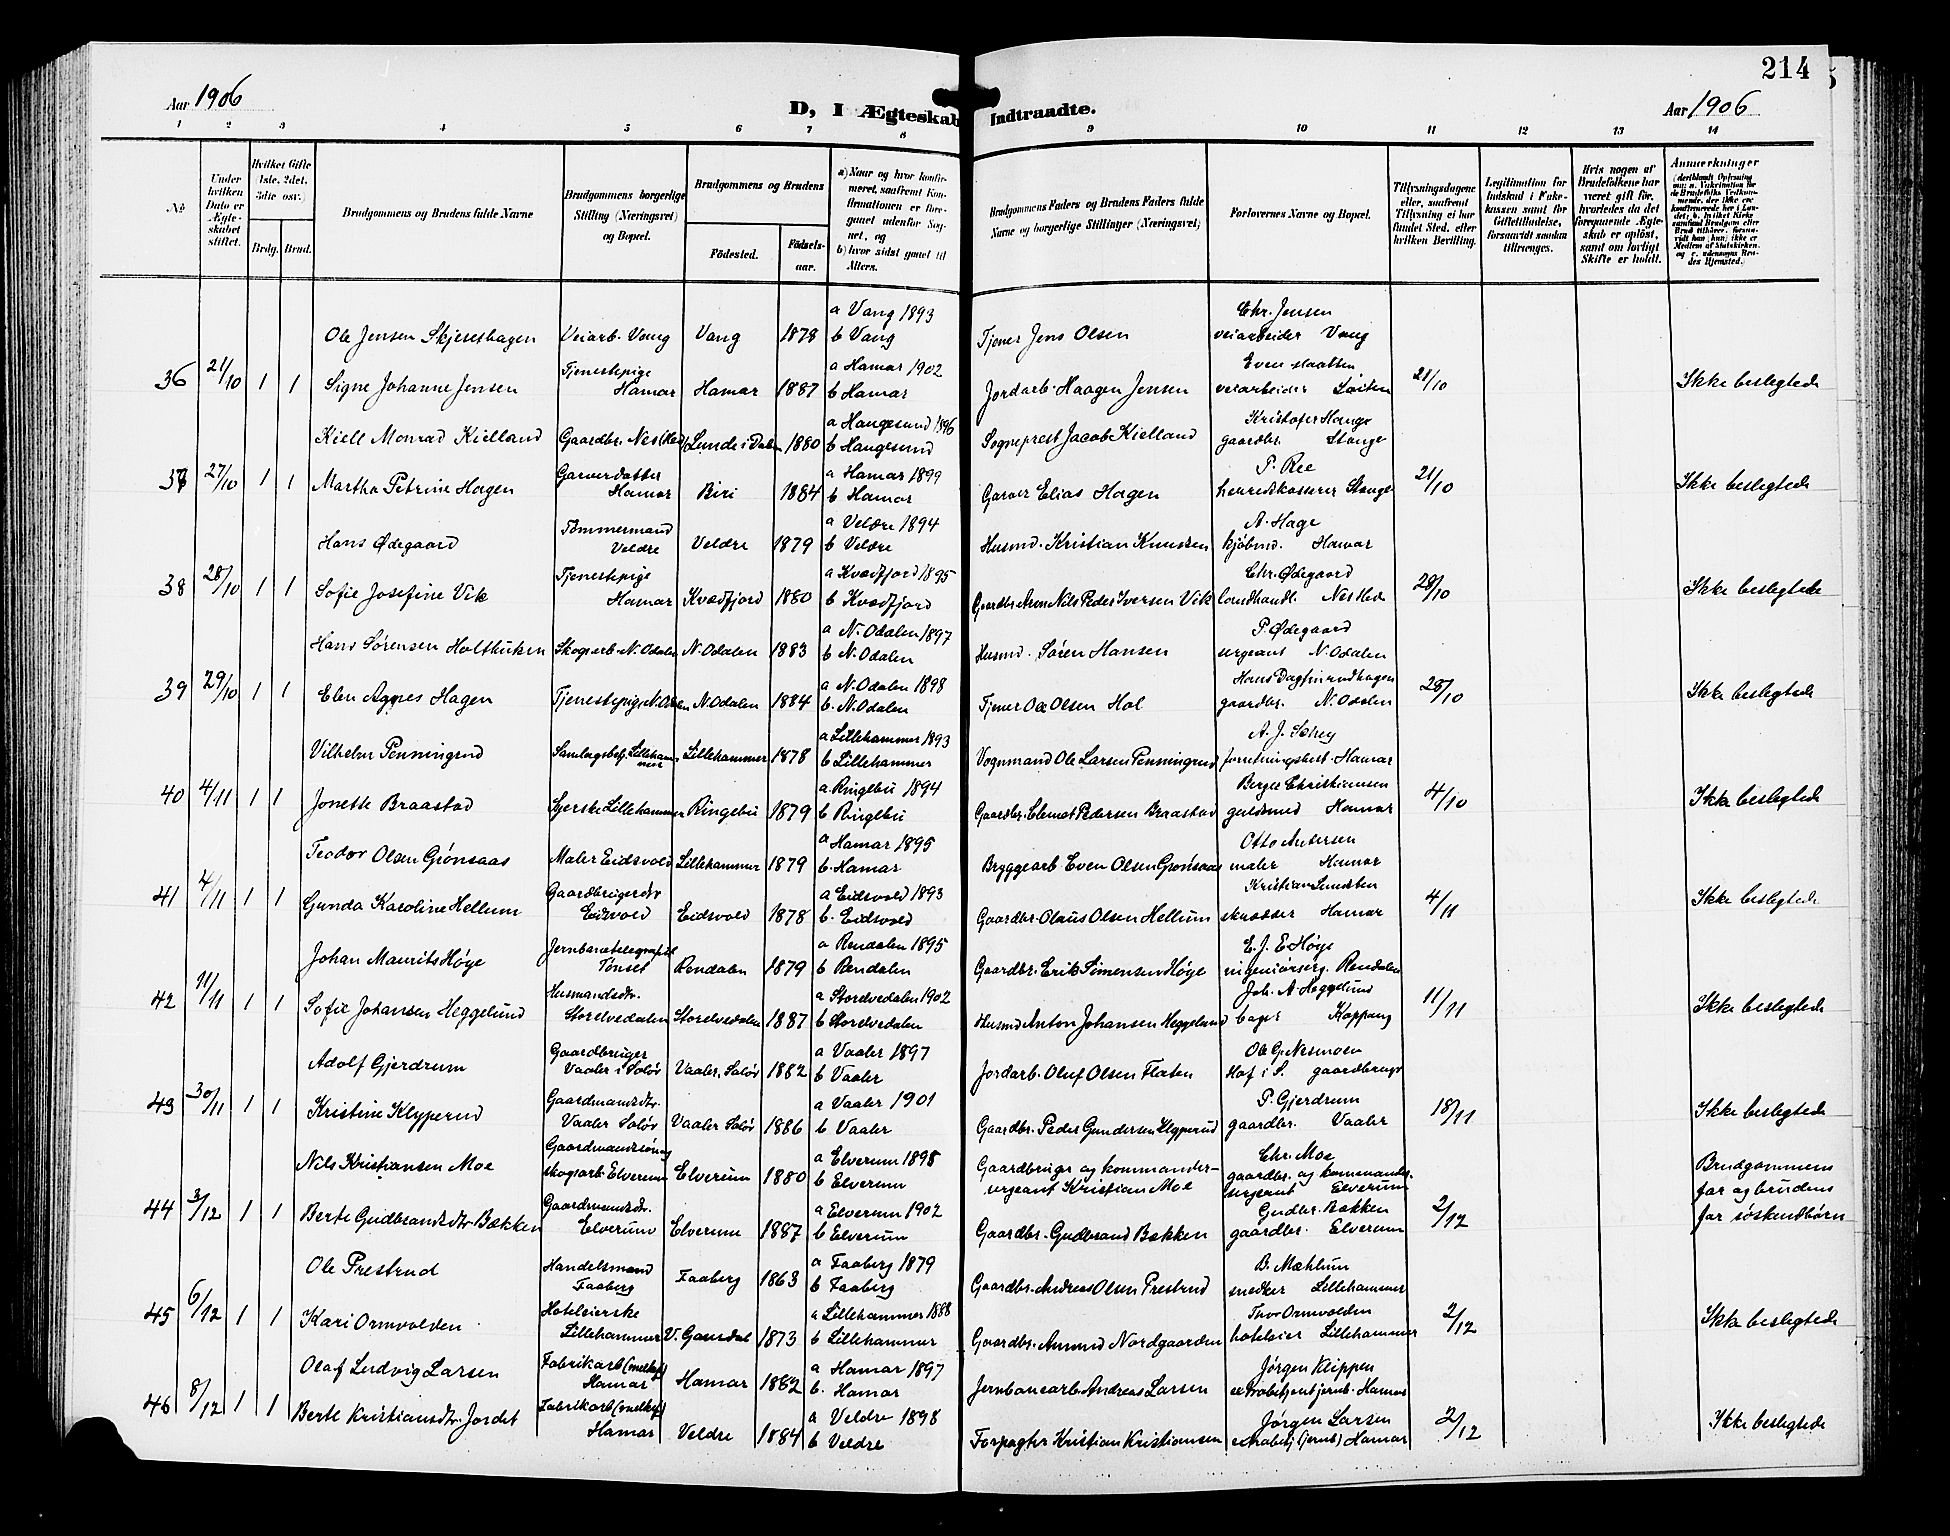 214
Aar 1906
D, I Ægteskab Indtraadte.
Aar 1906
1 2 3 4 5 6 7 8 9 10 11 12 13 14
No
Under hvilken Dato er Ægteskabet stiftet.
Hvilket Gifte 1ste, 2det, 3die osv.)
Brdg. Brud.
Brudgommens og Brudens fulde Navne
Brudgommens borgerlige Stilling (Næringsvei) og Bopæl.
Brudgommens og Brudens
Födested.
Födsels-aar.
a) Naar og hvor konfirmeret, saafremt Konfirmationen er foregaaet udenfor Sognet, og
b) hvor sidst gaaet til Alters.
Brudgommens Faders og Brudens Faders fulde Navne og borgerlige Stillinger (Næringsvei)
Forlovernes Navne og Bopæl.
Tillysningsdagene eller, saafremt Tillysning ei har fundet Sted, efter hvilken Bevilling.
Legitimation for Indskud i Enkekassen samt for Giftetilladelse, forsaavidt saadan tiltrænges.
Hvis nogen af Brudefolkene har været gift för, hvorledes da det foregaaende Ægteskab er oplöst, samt om lovligt Skifte er holdt.
Anmerkninger
Ole Jensen Skjeseshagen Veiarb. Vang Vang 1878 a Vang 1893 b Vang Tjener Jens Olsen Chr. Jensen veiarbeider Vang
36 21/10 1 1 Signe Johanne Jensen Tjenestepige Hamar Hamar 1887 a Hamar 1902 b Hamar Jordarb. Haagen Jensen Even veiarbeider Løiten 21/10 Ikke beslegtede
Kiell Monrad Kielland Gaardbr. Nes (Hed) Lunde i Dalen 1880 a Haugesund 1896 b Haugesund Sogneprest Jacob Kielland Kristofer Hauge gaardbr. Stange
37 27/10 1 1 Martha Petrine Hagen Garverdatter Hamar Biri 1884 a Hamar 1899 b Hamar Garver Elias Hagen P. Ree herredskasserer Stange 21/10 Ikke beslegtede
Hans Ødegaard Tømmermand Veldre Veldre 1879 a Veldre 1894 b Veldre Husmd. Kristian Knutsen A. Hage kjøbmd. Hamar
38 28/10 1 1 Sofie Josefine Vik Tjenestepige Hamar Kvædfjord 1880 a Kvædfjord 1895 b Kvædfjord Gaardbr. Nils Peder Iversen Vik Chr. Ødegaard landhandl. Nes Hed 28/10 Ikke beslegtede
Hans Sørensen Holthuken Skogsarb. N. Odalen N. Odalen 1883 a N. Odalen 1897 b N. Odalen Husmd. Søren Hansen P. Ødegaard sergeant N. Odalen
39 29/10 1 1 Elen Agnes Hagen Tjenestepige N. Odalen N. Odalen 1884 a N. Odalen 1898 b. N. Odalen Tjener Ole Olsen Hol Hans Dagfinrudhagen gaardbr. N. Odalen 28/10 Ikke beslegtede
Vilhelm Penningrud Samlagsbest. Lillehammer Lillehammer 1878 a Lillehammer 1893 b Lillehammer Vognmand Ole Larsen Penningrud A. J. Schey forretningsbest. Hamar
40 4/11 1 1 Jonette Braastad Syerske Lillehammer Ringebu 1879 a Ringebu 1894 b Ringebu Gaardbr. Clemet Pedersen Braastad Berger Christiansen guldsmed Hamar 4/10 Ikke beslegtede
Teodor Olsen Grønsaas Maler Eidsvold Lillehammer 1879 a Hamar 1895 b. Hamar Bryggearb Even Olsen Grønsaas Otto Andersen maler Hamar
41 4/11 1 1 Gunda Karoline Hellum Gaardbrugerdtr Eidsvold Eidsvold 1878 a Eidsvold 1893 b. Eidsvold Gaardbr. Olaus Olsen Hellum Kristian Hamar 4/11 Ikke beslegtede
Johan Maurits Høye Jernbanetelegrafist Tønset Rendalen 1879 a Rendalen 1895 b Rendalen Gaardbr. Erik Simensen Høye E. J. E Høye Rendalen
42 11/11 1 1 Sofie Johansen Heggelund Husmandsdtr. Storelvedalen Storelvedalen 1887 a Storelvedalen 1902 b Storelvedalen Husmd Anton Johansen Heggelund Joh. A. Heggelund bager Koppang 11/11 Ikke beslegtede
Adolf Gjerdrum Gaardbruger Vaaler i Solør Vaaler, Solør 1882 a Vaaler 1897 b Vaaler Jordarb. Oluf Olsen Flaten Ole G. Nesmoen Hof i S. gaardbruger
43 30/11 1 1 Kristine Klypperud Gaardmandsdtr. Vaaler Solør Vaaler Solør 1886 a Vaaler 1901 b Vaaler Gaardbr. Peder Gundersen Klypperud P. Gjerdrum gaardbr. Vaaler 18/11 Ikke beslegtede
Nils Kristiansen Moe Gaardmandssøn og skogsarb. Elverum Elverum 1880 a Elverum 1898 b Elverum Gaardbruger og kommandersergeant Kristian Moe Chr. Moe gaardbr. og kommander. sergeant Elverum Brudgommens far og brudens far søskendbørn
44 3/12 1 1 Berte Gudbrandsdtr. Bækken Gaardmandsdtr. Elverum Elverum 1887 a Elverum 1902 b Elverum Gaardbr. Gudbrand Bækken Gudbr. Bakken gaardbr. Elverum 2/12
Ole Prestrud Handelsmand Faaberg Faaberg 1863 a Faaberg 1879 b Faaberg Gaardbr. Andreas Olsen Prestrud B. Mæhlum snedker Lillehammer
45 6/12 1 1 Kari Ormvolden Hoteleierske Lillehammer V. Gausdal 1873 a Lillehammer 1888 b Lillehammer Gaardbr. Amund Nordgaarden Thor Ormvolden hoteleier Lillehammer 2/12 Ikke beslegtede
Olaf Ludvig Larsen Fabrikarb (melkef) Hamar Hamar 1882 a Hamar 1897 b. Hamar Jernbanearb. Andreas Larsen Jørgen Klippen Hamar
46 8/12 1 1 Berte Kristiansdtr. Jordet Fabrikarb (melkef) Hamar Veldre 1884 a Veldre 1898 b Veldre Forpagter Kristian Kristiansen Jørgen Larsen Hamar 2/12 Ikke beslegtede